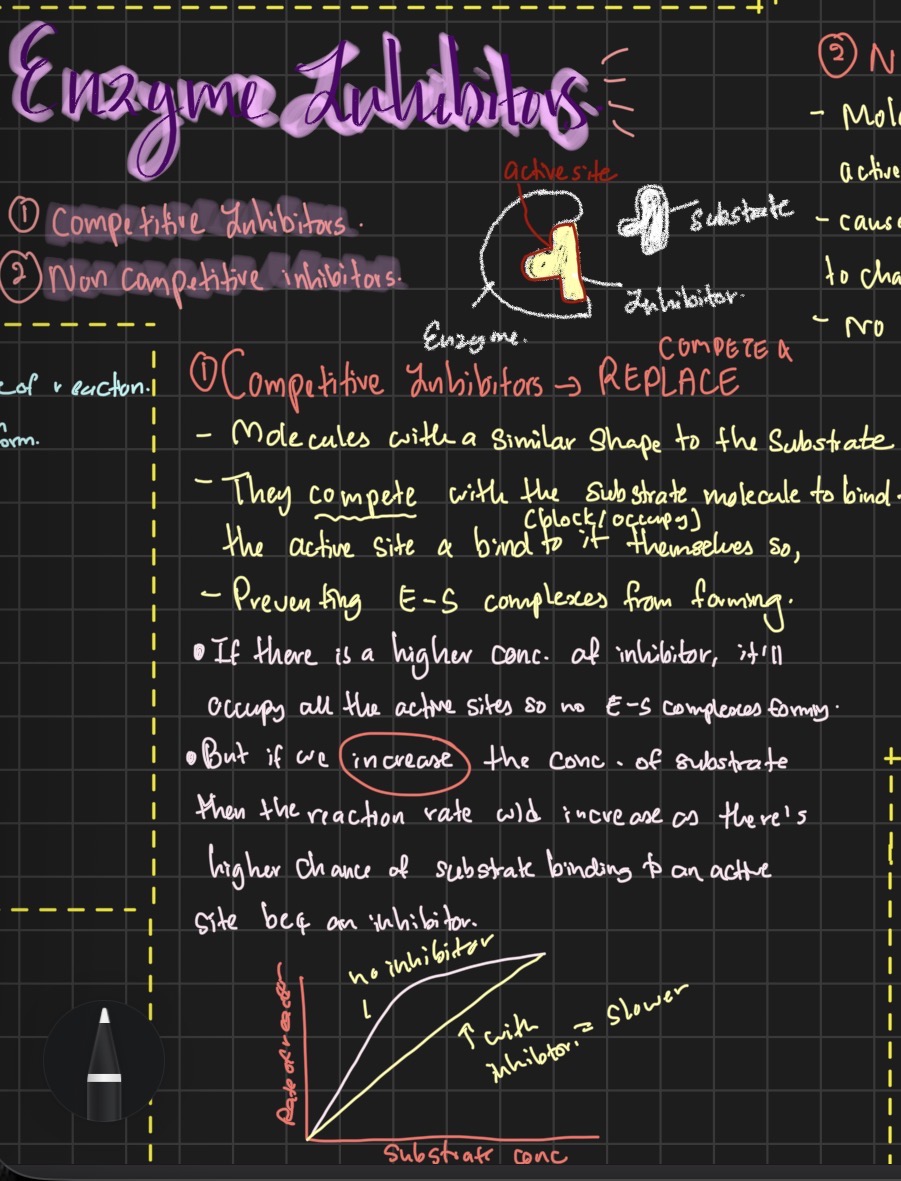 Enzyme Inhibitors
① Competitive Inhibitors.
② Non Competitive inhibitors.
active site
Substrate
Inhibitor.
Enzyme.
② N
- Mol
active
- cause
to cha
- NO
of reaction.
orm.
COMPETE &
① Competitive Inhibitors → REPLACE
- Molecules with a Similar Shape to the Substrate
- They compete with the substrate molecule to bind
(block/occupy)
the active site & bind to it themselves so,
- Preventing E-S complexes from forming.
• If there is a higher conc. of inhibitor, it'll
occupy all the active sites so no E-S complexes forming.
• But if we increase the conc. of substrate
then the reaction rate wld increase as there's
higher chance of substrate binding to an active
site bef an inhibitor.
no inhibitor
↑ with inhibtor. = Slower
Rate of reaction
Substrate conc